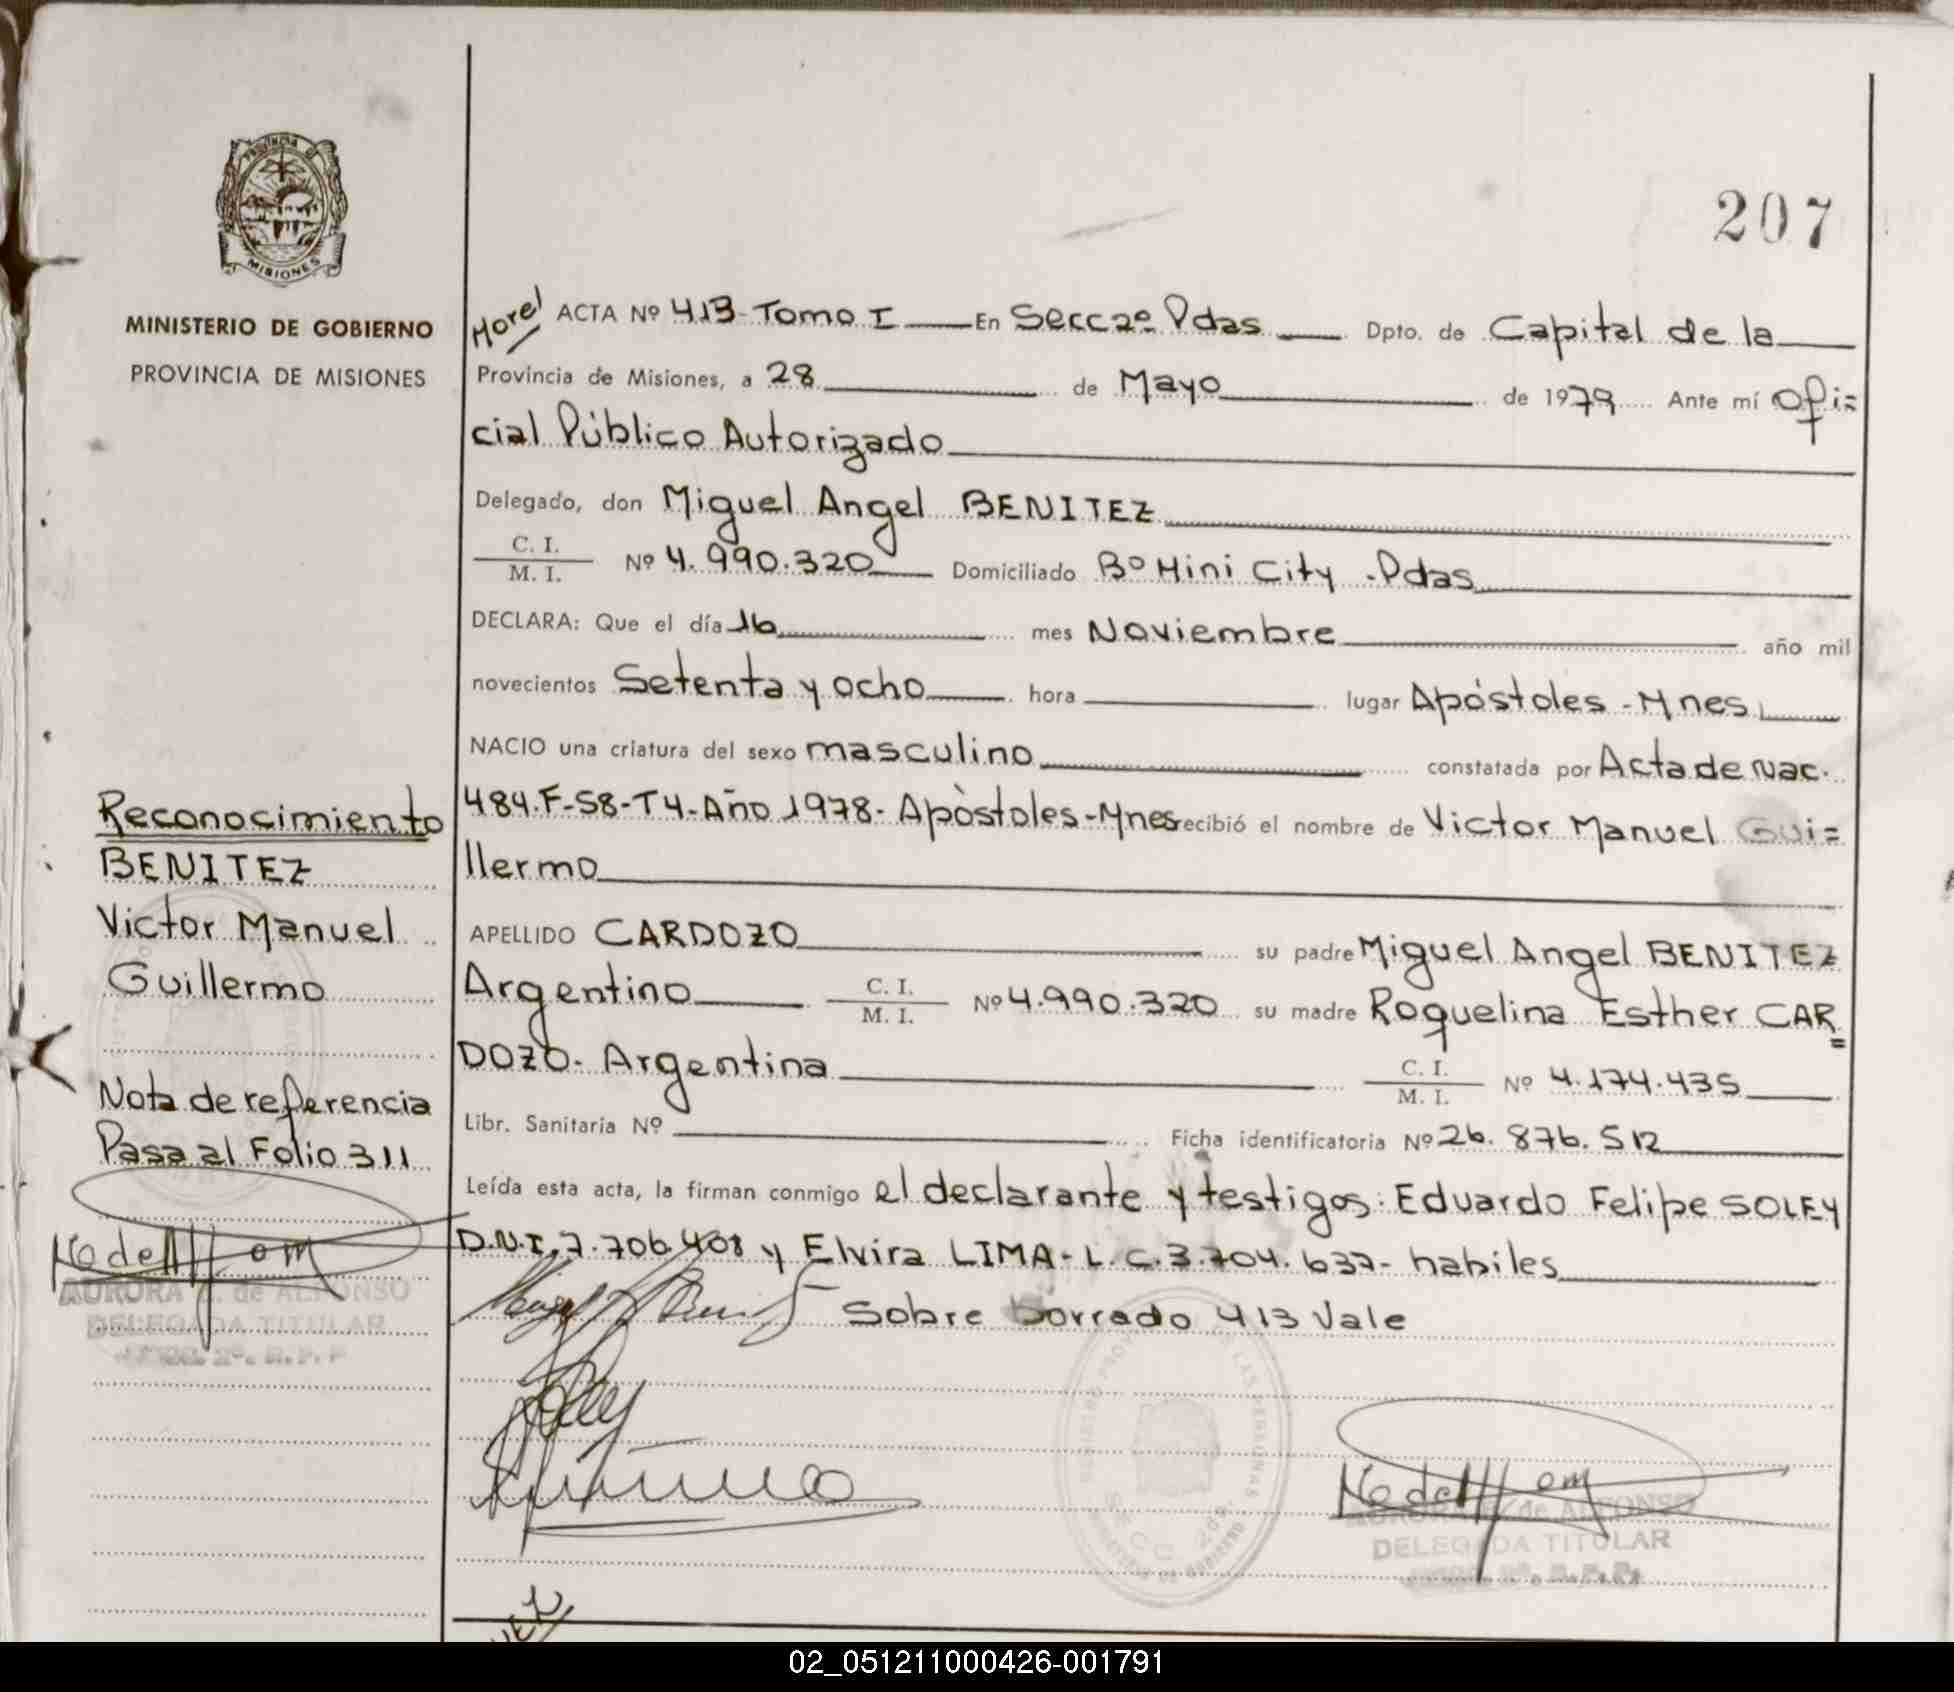 207
PROVINCIA DE
MISIONES
MINISTERIO DE GOBIERNO
PROVINCIA DE MISIONES
Morel
ACTA Nº 413-Tomo I En Secc 2º Pdas Dpto. de Capital de la
Provincia de Misiones, a 28 de Mayo de 1979 Ante mí Ofi=
cial Público Autorizado
Delegado, don Miguel Angel BENITEZ
C. I.
M. I.
Nº 4.990.320 Domiciliado Bº Mini City -Pdas
DECLARA: Que el día 16 mes Noviembre año mil
novecientos Setenta y ocho hora lugar Apóstoles - Mnes
NACIO una criatura del sexo masculino constatada por Acta de Nac.
484-F-58-T4-Año 1978- Apòstoles-Mnes recibió el nombre de Victor Manuel Gui=
llermo
APELLIDO CARDOZO su padre Miguel Angel BENITEZ
Argentino C. I. M. I. Nº 4.990.320 su madre Roquelina Esther CAR=
DOZO- Argentina C. I. M. I. Nº 4.174.435
Libr. Sanitaria Nº Ficha identificatoria Nº 26.876.512
Leída esta acta, la firman conmigo el declarante y testigos: Eduardo Felipe SOLEY
D.N.I. 7.706.408 y Elvira LIMA- L.C. 3.704.637- habiles
Sobre borrado 413 Vale
Reconocimiento
BENITEZ
Victor Manuel
Guillermo
Nota de referencia
Pasa al Folio 311
AURORA de ALFONSO
DELEGADA TITULAR
AURORA de ALFONSO
DELEGADA TITULAR
02_051211000426-001791